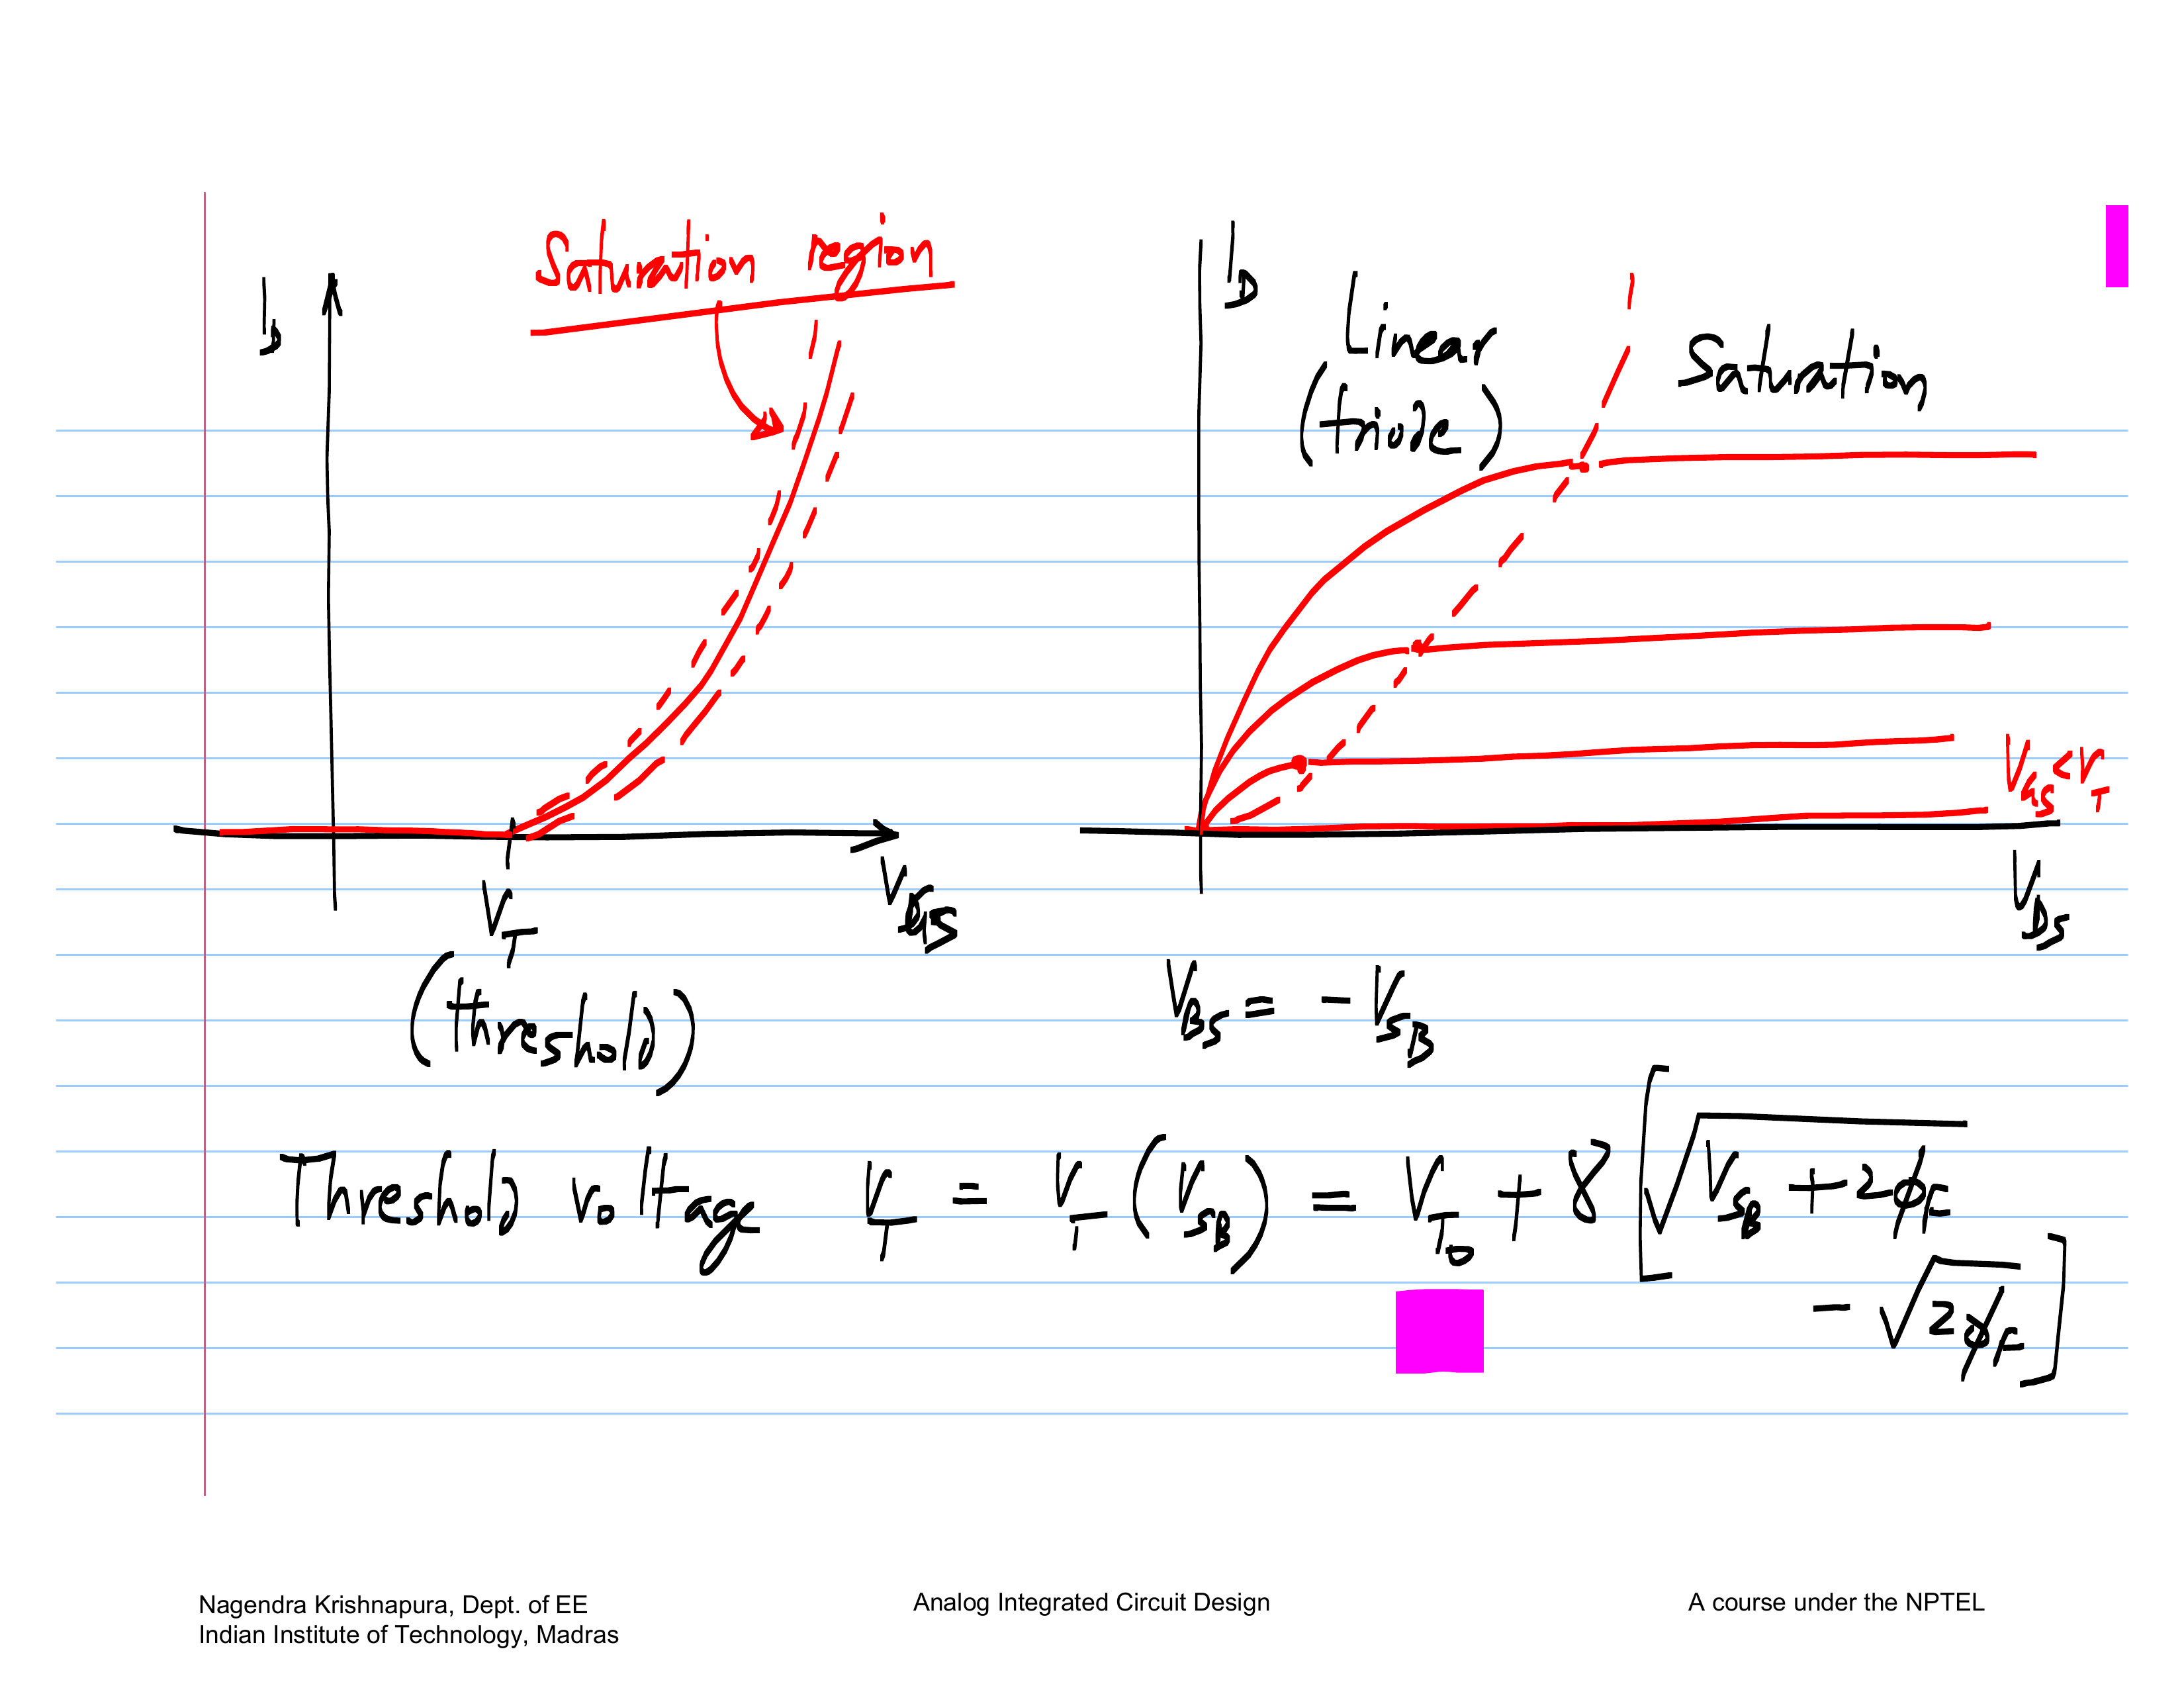 Saturation region
I_D
V_T
(threshold)
V_GS
I_D
Linear
(triode)
Saturation
V_GS < V_T
V_DS
V_BS = - V_SB
Threshold voltage V_T = V_T (V_SB) = V_T0 + γ [ √(V_SB + 2φ_F)
- √(2φ_F) ]
Nagendra Krishnapura, Dept. of EE
Indian Institute of Technology, Madras
Analog Integrated Circuit Design
A course under the NPTEL